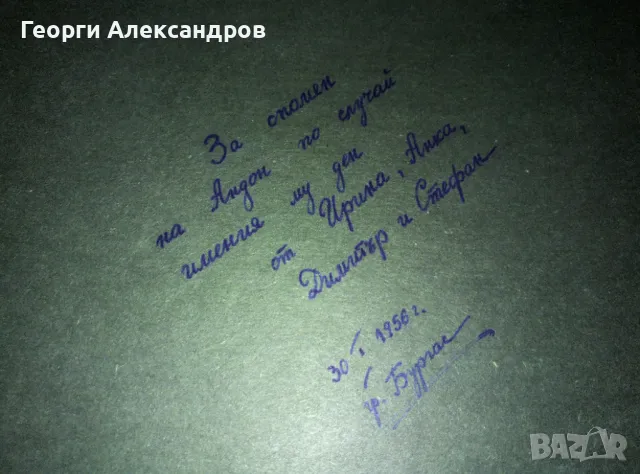 Георги Александров
За спомен
на Андон по случай
имения му ден
от Ирина, Анка,
Димитър и Стефан
30 I 1956 г.
гр. Бургас
BAZAR